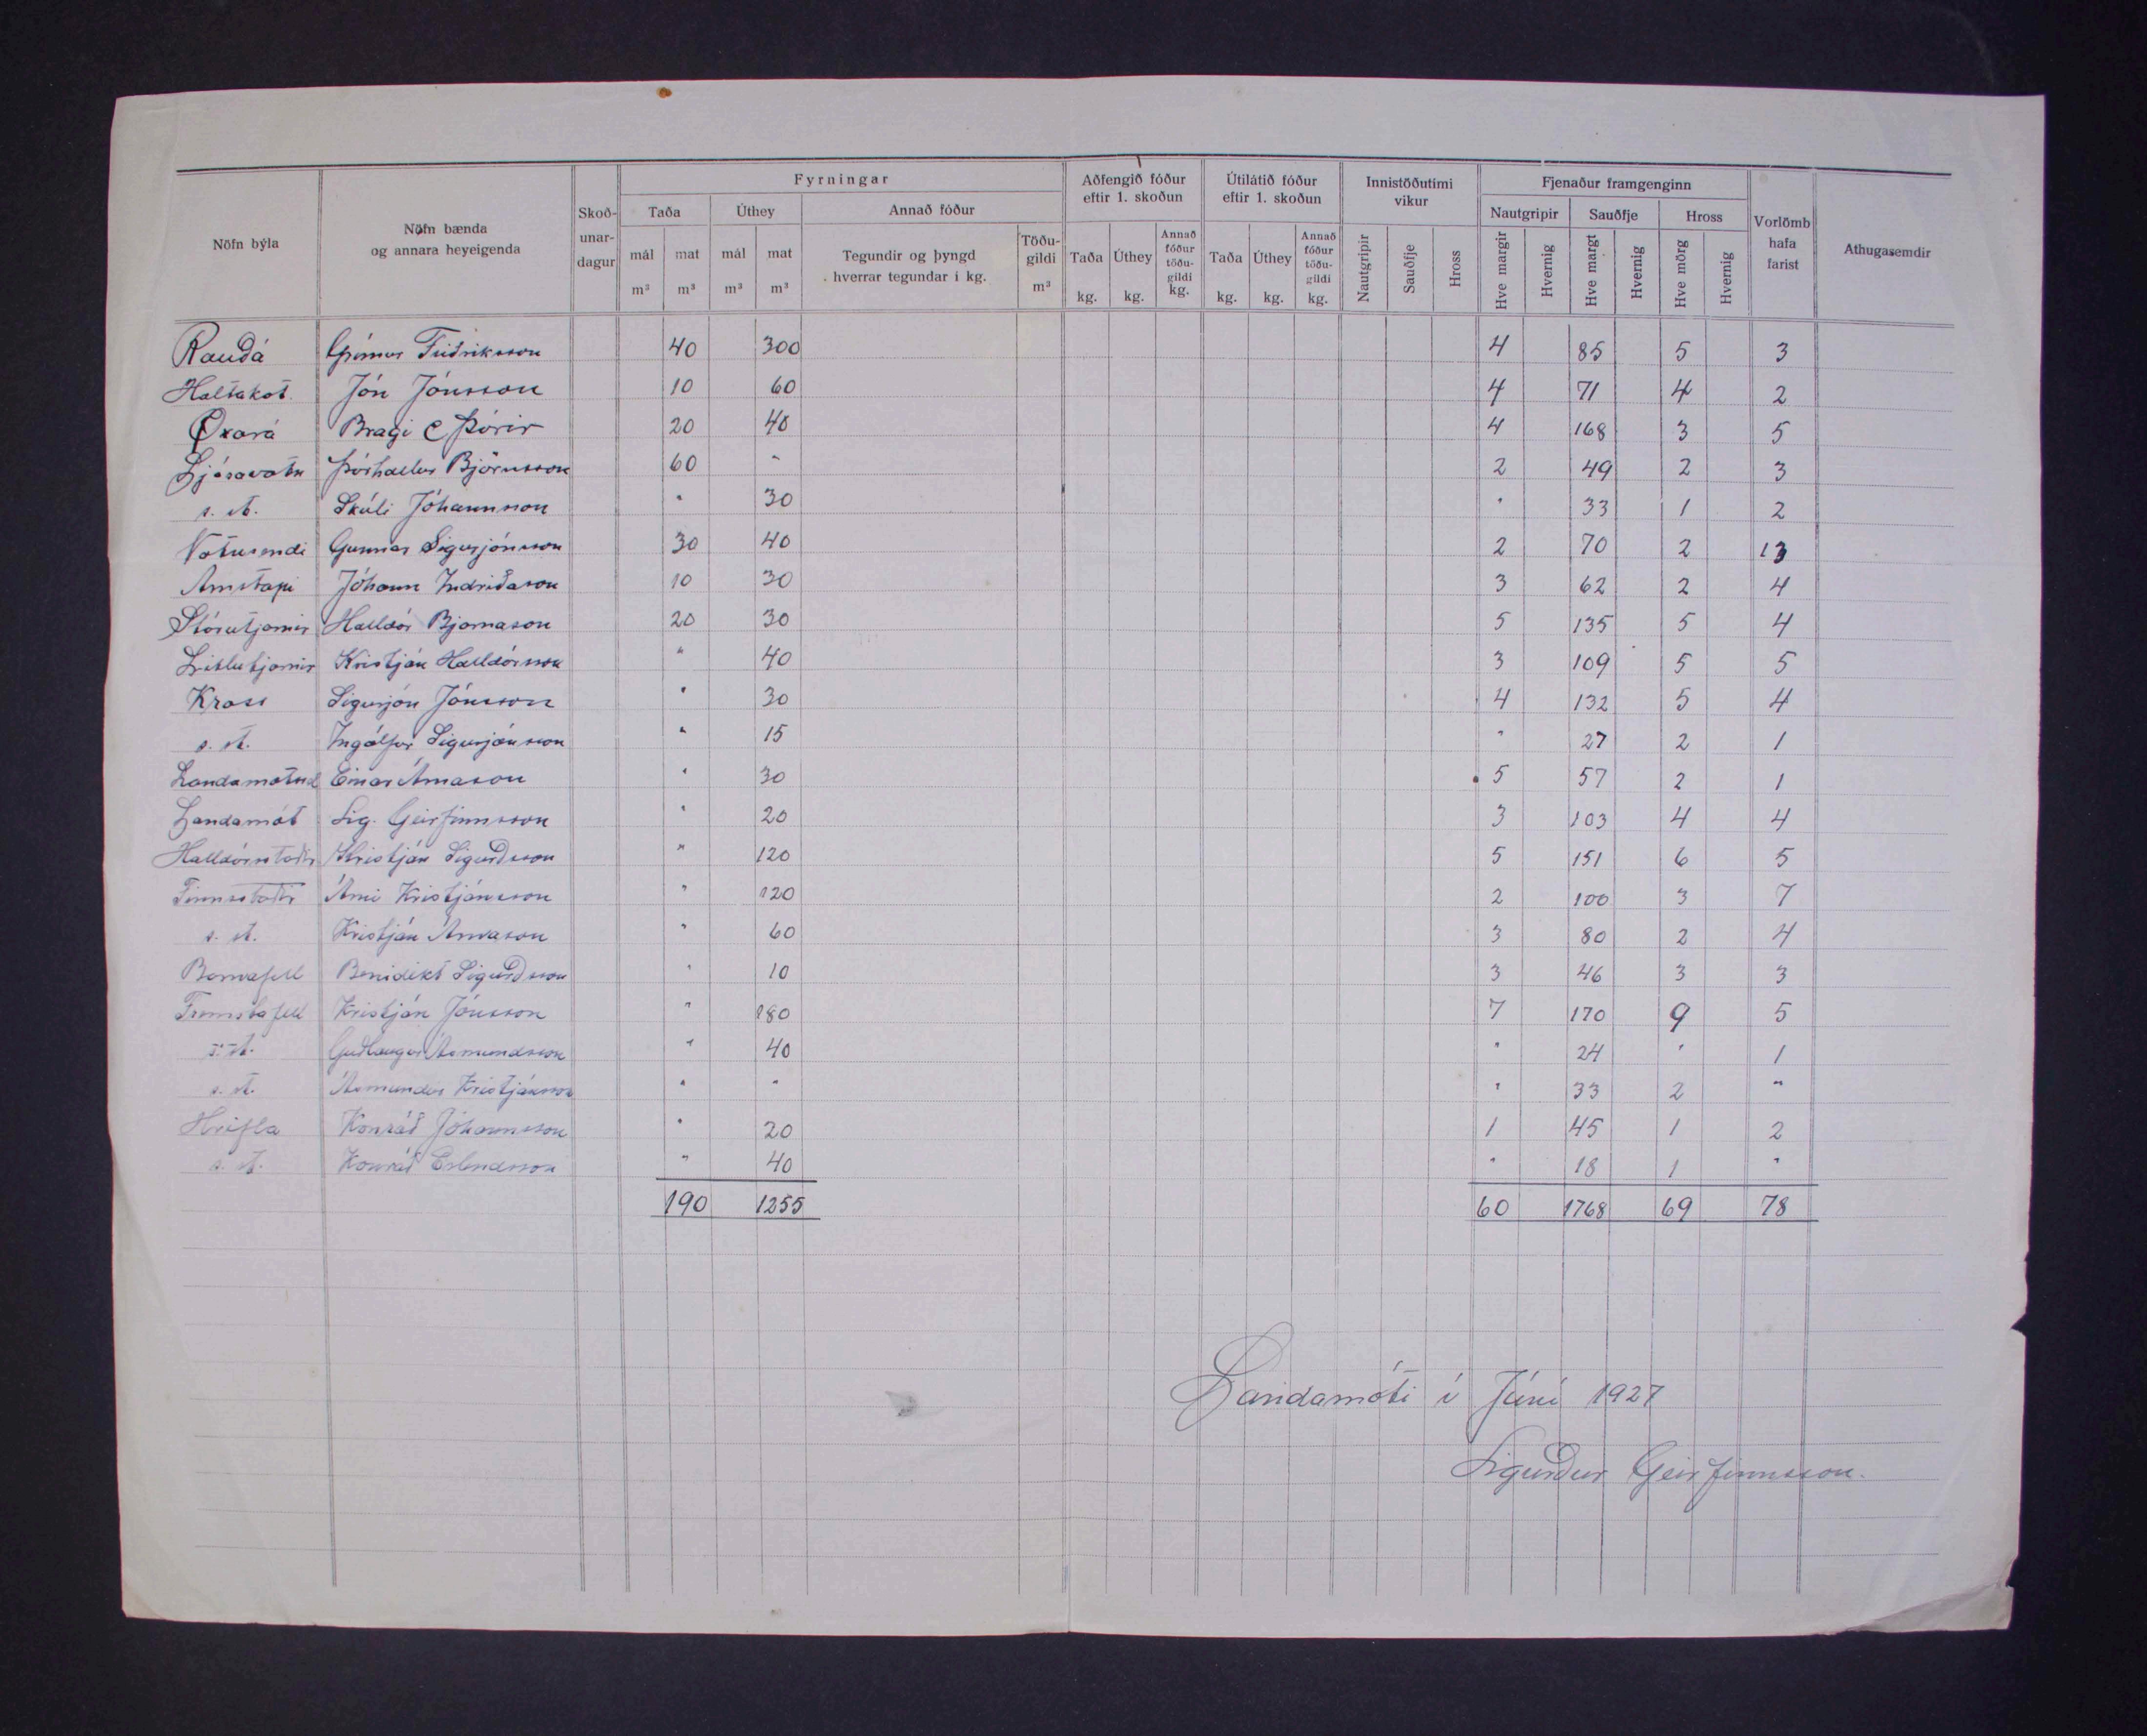 Fyrningar Aðfengið fóður eftir 1. skoðun Útilátið fóður eftir 1. skoðun Innistöðutími vikur Fjenaður framgenginn
Nöfn býla Nöfn bænda og annara heyeigenda Skoð-unar-dagur Taða Úthey Annað fóður Nautgripir Sauðfje Hross Vorlömb hafa farist Athugasemdir
mál m³ mat m³ mál m³ mat m³ Tegundir og þyngd hverrar tegundar í kg. Töðu-gildi m³ Taða kg. Úthey kg. Annað fóður töðu-gildi kg. Taða kg. Úthey kg. Annað fóður töðu-gildi kg. Nautgripir Sauðfje Hross Hve margir Hvernig Hve margt Hvernig Hve mörg Hvernig
Rauðá Grímur Friðriksson 40 300 4 85 5 3
Holtakot. Jón Jónsson 10 60 4 71 4 2
Öxará Bragi & Þórir 20 40 4 168 3 5
Ljósavatn Þórhallur Björnsson 60 " 2 49 2 3
s. st. Skúli Jóhannsson " 30 " 33 1 2
Vatnsendi Gunnar Sigurjónsson 30 40 2 70 2 13
Arnstapi Jóhann Indriðason 10 30 3 62 2 4
Stórutjarnir Halldór Bjarnason 20 30 5 135 5 4
Litlutjarnir Kristján Halldórsson " 40 3 109 5 5
Kross Sigurjón Jónsson " 30 4 132 5 4
s. st. Ingólfur Sigurjónsson " 15 " 27 2 1
Einar Árnason " 30 5 57 2 1
Landamót Sig. Geirfinnsson " 20 3 103 4 4
Halldórsstaðir Kristján Sigurðsson " 120 5 151 6 5
Finnsstaðir Árni Kristjánsson " 120 2 100 3 7
s. st. Kristján Árnason " 60 3 80 2 4
Barnafell Benidikt Sigurðsson " 10 3 46 3 3
Fremstafell Kristján Jónsson " 180 7 170 9 5
s. st. Guðlaugur Ásmundsson " 40 " 24 " 1
s. st. Ásmundur Kristjánsson " " " 33 2 "
Hrifla Konráð Jóhannsson " 20 1 45 1 2
s. st. Konráð Erlendsson " 40 " 18 1 "
190 1255 60 1768 69 78
Landamóti í Júní 1927
Sigurður Geirfinnsson.